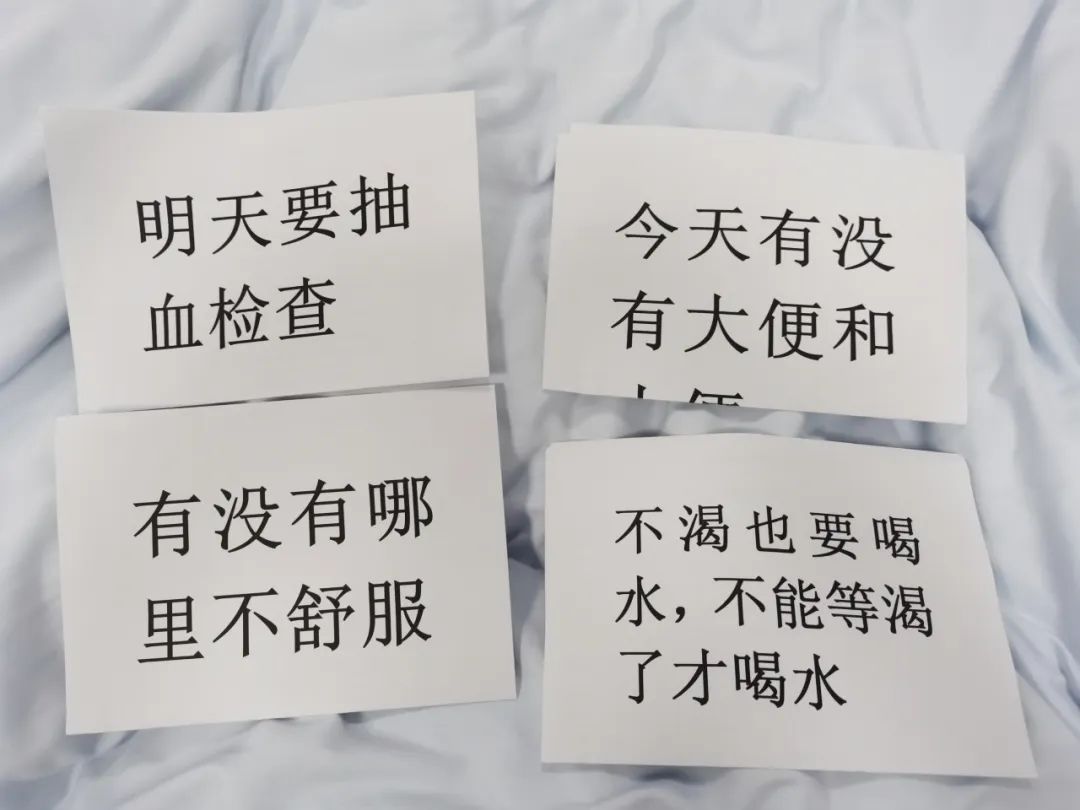 明天要抽
血检查
今天有没
有大便和
有没有哪
里不舒服
不渴也要喝
水，不能等渴
了才喝水